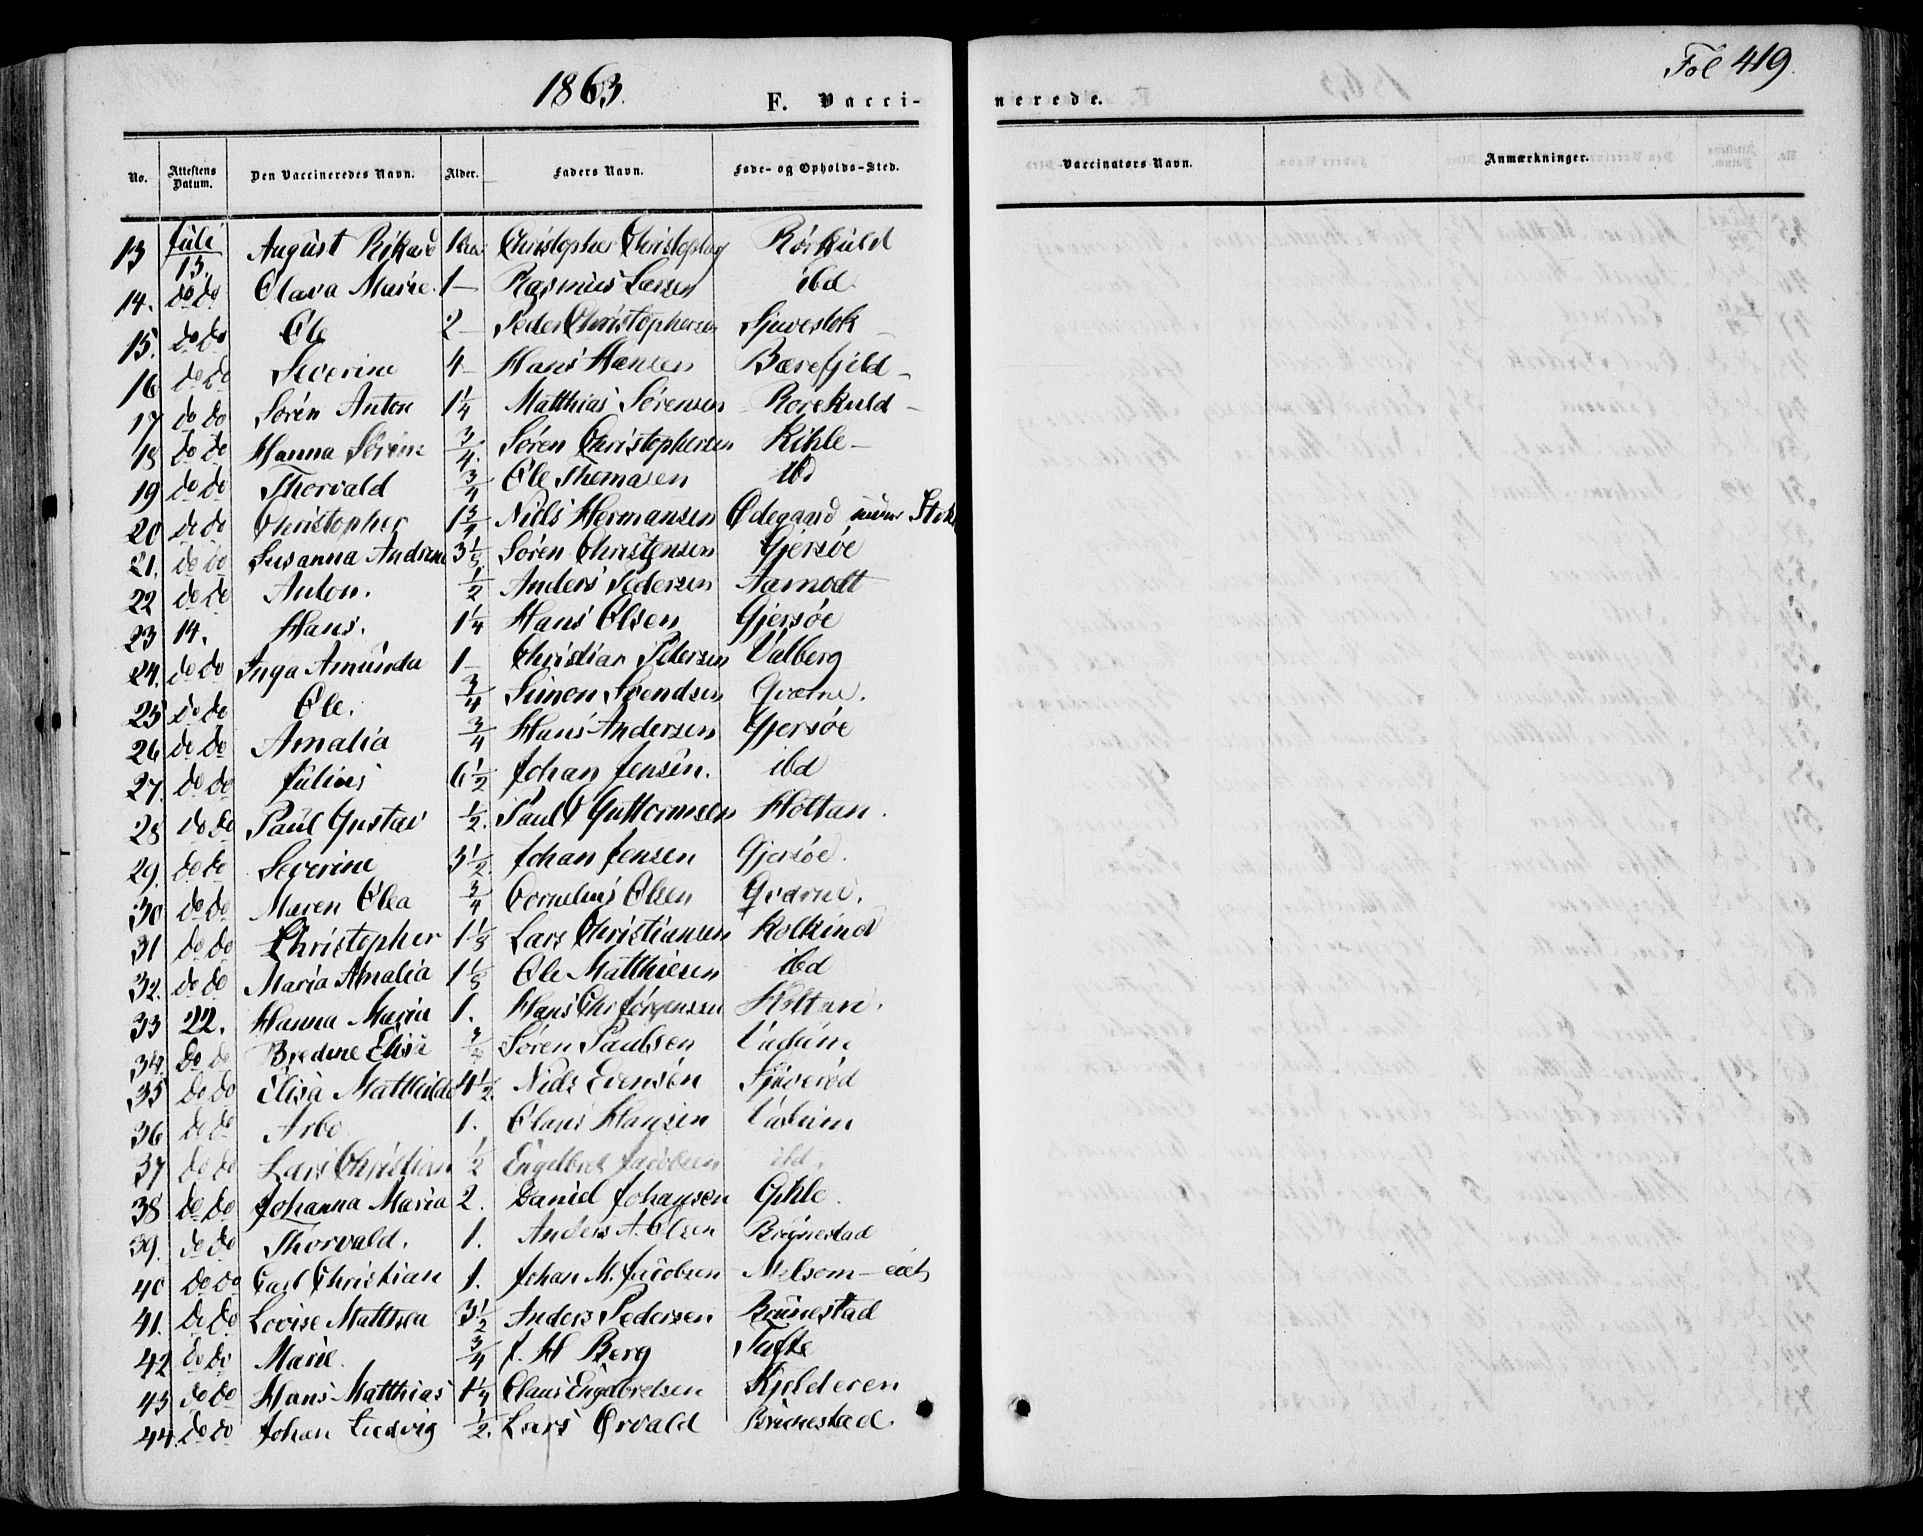 1863.
F. Vacci-
nerede.
Fol 419.
No. Attestens Datum. Den Vaccineredes Navn. Alder. Faders Navn. Føde- og Opholds-Sted. Vaccinators Navn. Anmærkninger.
13 Juli 13. August Rikard 1 Christopher Rørkuld
14. do do Olava Marie. 1 — Rasmus Larsen ibd.
15. do do Ole 2 — Peder Christophersen
16 do do Severine 4 — Hans Hansen Bærefjeld —
17 do do Sørén Anton 1 1/4 Matthias Sørensen Rorekuld —
18 do do Hanna Sørine 3/4. Søren Christophersen Kihle —
19 do do Thorvald 3/4 Ole Thomasen ibd
20 do do Christopher 1 3/4 Niels Hermansen Ødegaard
21. do do Susanna Andrine 3 1/2 Søren Christensen Gjersøe
22 do do Anton. 1/2 Anders Pedersen Aamodt
23 14. Hans. 1 1/4 Hans Olsen Gjersøe
24. do do Inga Amunda 1 — Christian Pedersen Valberg
25 do do Ole. 3/4 Simon Svendsen Qværne.
26 do do Amalia 3/4 Hans Andersen Gjersøe
27. do do Julius 6 1/2 Johan Jensen. ibd
28 do do Paul Gustav 1/2. Paul Guttormsen Holtan.
29. do do Severine 3 1/2. Johan Jensen Gjersøe.
30 do do Maren Olea 3/4 Cornelius Olsen Qværne.
31 do do Christopher 1 1/3 Lars Christiansen Kolkind
32. do do Maria Amalia 1 1/3 Ole Matthiesen ibd
33 22. Hanna Maria 1. Hans Chr Jørgensen Holtan.
34. do do Bredine Elisa 3/4 Søren Paulsen
35 do do Elisa Mathilde 4 1/2. Niels Evensen
36 do do Arbo 1. Claus Hansen
37 do do Lars Christian 1/2 Engelbret Jacobsen ibd.
38 do do Johanna Maria 2. Daniel Johansen Gihle.
39. do do Thorvald. 1. Anders A. Olsen
40 do do Carl Christian 1. Johan M. Jacobsen Melsom —
41. do do Lovise Matthea 3 1/2 Anders Pedersen Brunestad
42 do do Marie. 3/4 J. H Berg Tufte
43 do do Hans Matthias 1 1/4 Claus Engebretsen Kjelderen
44. do do Johan Ludvig 1/2. Lars Ørvald Brunestad.